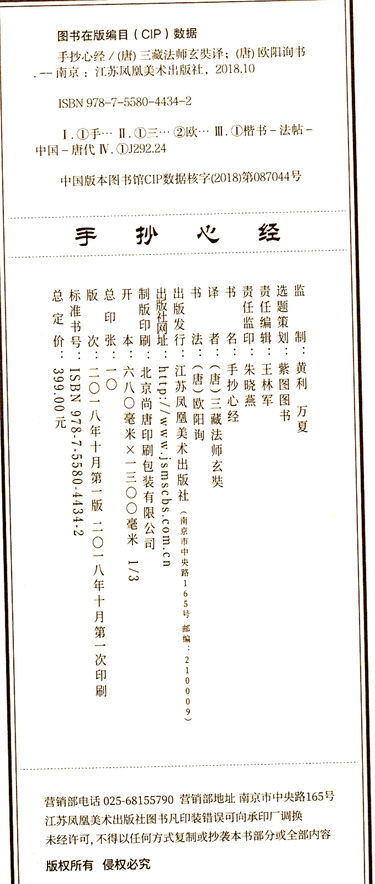 图书在版编目（CIP）数据
手抄心经／(唐) 三藏法师玄奘译；(唐) 欧阳询书
. — 南京 ：江苏凤凰美术出版社，2018.10
ISBN 978-7-5580-4434-2
Ⅰ. ①手… Ⅱ. ①三… ②欧… Ⅲ. ①楷书－法帖－
中国－唐代 Ⅳ. ①J292.24
中国版本图书馆CIP数据核字(2018)第087044号
手 抄 心 经
监 制：黄利 万夏
选题策划：紫图图书
责任编辑：王林军
责任监印：朱晓燕
书 名：手抄心经
译 者：(唐)三藏法师玄奘
书 法：(唐)欧阳询
出版发行：江苏凤凰美术出版社（南京市中央路165号 邮编：210009）
出版社网址：http://www.jsmscbs.com.cn
制版印刷：北京尚唐印刷包装有限公司
开 本：六八〇毫米×一三〇〇毫米 1/3
总 印 张：一〇
版 次：二〇一八年十月第一版 二〇一八年十月第一次印刷
标准书号：ISBN 978-7-5580-4434-2
总 定 价：399.00元
营销部电话 025-68155790 营销部地址 南京市中央路165号
江苏凤凰美术出版社图书凡印装错误可向承印厂调换
未经许可, 不得以任何方式复制或抄袭本书部分或全部内容
版权所有 侵权必究